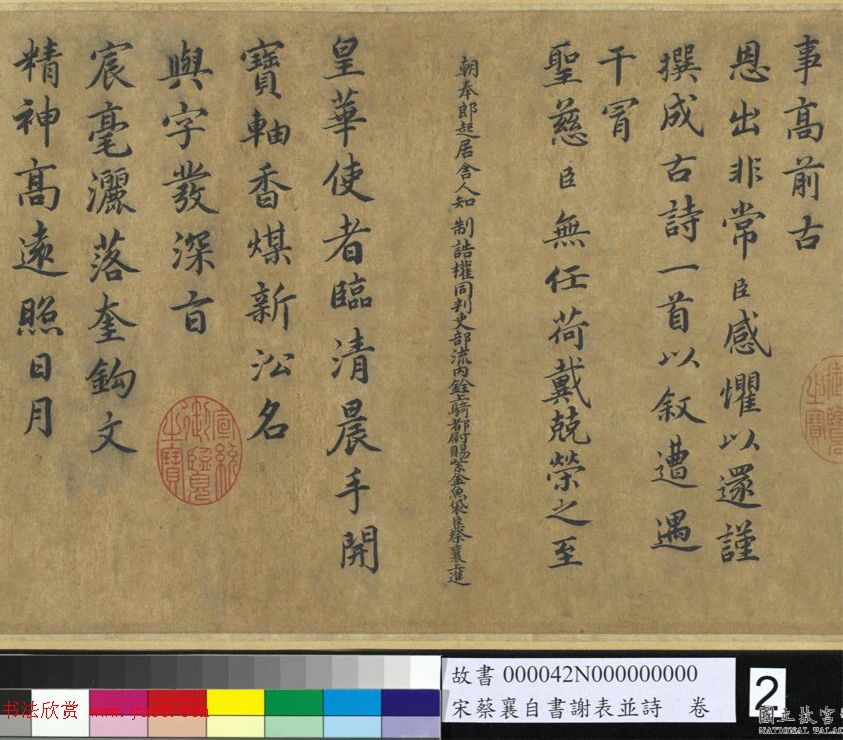 事高前古
恩出非常臣感懼以還謹
撰成古詩一首以叙遭遇
干冐
聖慈臣無任荷戴兢榮之至
朝奉郎起居舍人知制誥權同判吏部流內銓上騎都尉賜紫金魚袋臣蔡襄上進
皇華使者臨清晨手開
寶軸香煤新沿名
與字發深旨
宸毫灑落奎鈎文
精神高遠照日月
宣統
御覽
之寶
御覽
之寶
故書 000042N000000000
宋蔡襄自書謝表並詩 卷
2
书法欣赏
國立故宮
NATIONAL PALA